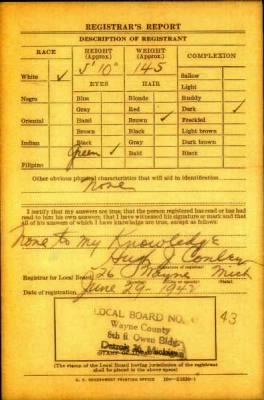 REGISTRAR'S REPORT
DESCRIPTION OF REGISTRANT
RACE HEIGHT (Approx.) WEIGHT (Approx.) COMPLEXION
5' 10" 145
White ✓ Sallow
EYES HAIR Light
Negro Blue Blonde Ruddy
Gray Red Dark ✓
Oriental Hazel Brown ✓ Freckled
Brown Black Light brown
Indian Black Gray Dark brown
Green ✓ Bald Black
Filipino
Other obvious physical characteristics that will aid in identification
None
I certify that my answers are true; that the person registered has read or has had
read to him his own answers; that I have witnessed his signature or mark and that
all of his answers of which I have knowledge are true, except as follows:
None to my Knowledge
Hugh J. Conley
(Signature of registrar)
Registrar for Local Board 26 Wayne Mich
(City or county) (State)
Date of registration June 29 - 1942
LOCAL BOARD NO. 43
Wayne County
5th fl. Owen Bldg.
Detroit 26 Michigan
(The stamp of the Local Board having jurisdiction of the registrant
shall be placed in the above space)
U. S. GOVERNMENT PRINTING OFFICE